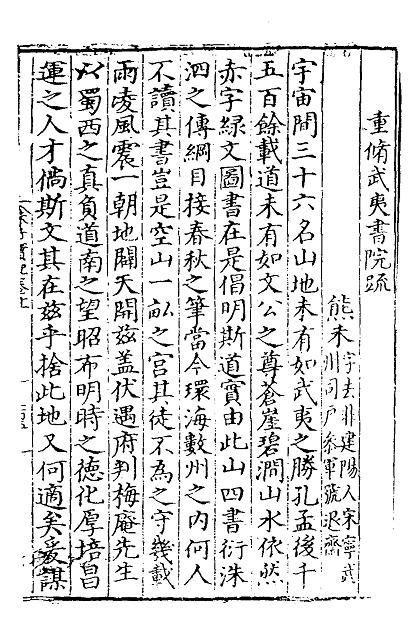 重脩武夷書院疏
熊禾字去非建陽人宋寧武州司戶參軍號退齋
宇宙間三十六名山地未有如武夷之勝孔孟後千
五百餘載道未有如文公之尊蒼崖碧澗山水依然
赤字綠文圖書在是倡明斯道實由此山四書衍洙
泗之傳綱目接春秋之筆當今環海數州之內何人
不讀其書豈是空山一畝之宮其徒不為之守幾載
雨凌風震一朝地闢天開茲蓋伏遇府判梅庵先生
以蜀西之真負道南之望昭布明時之德化厚培昌
運之人才倘斯文其在茲乎捨此地又何適矣爰謀